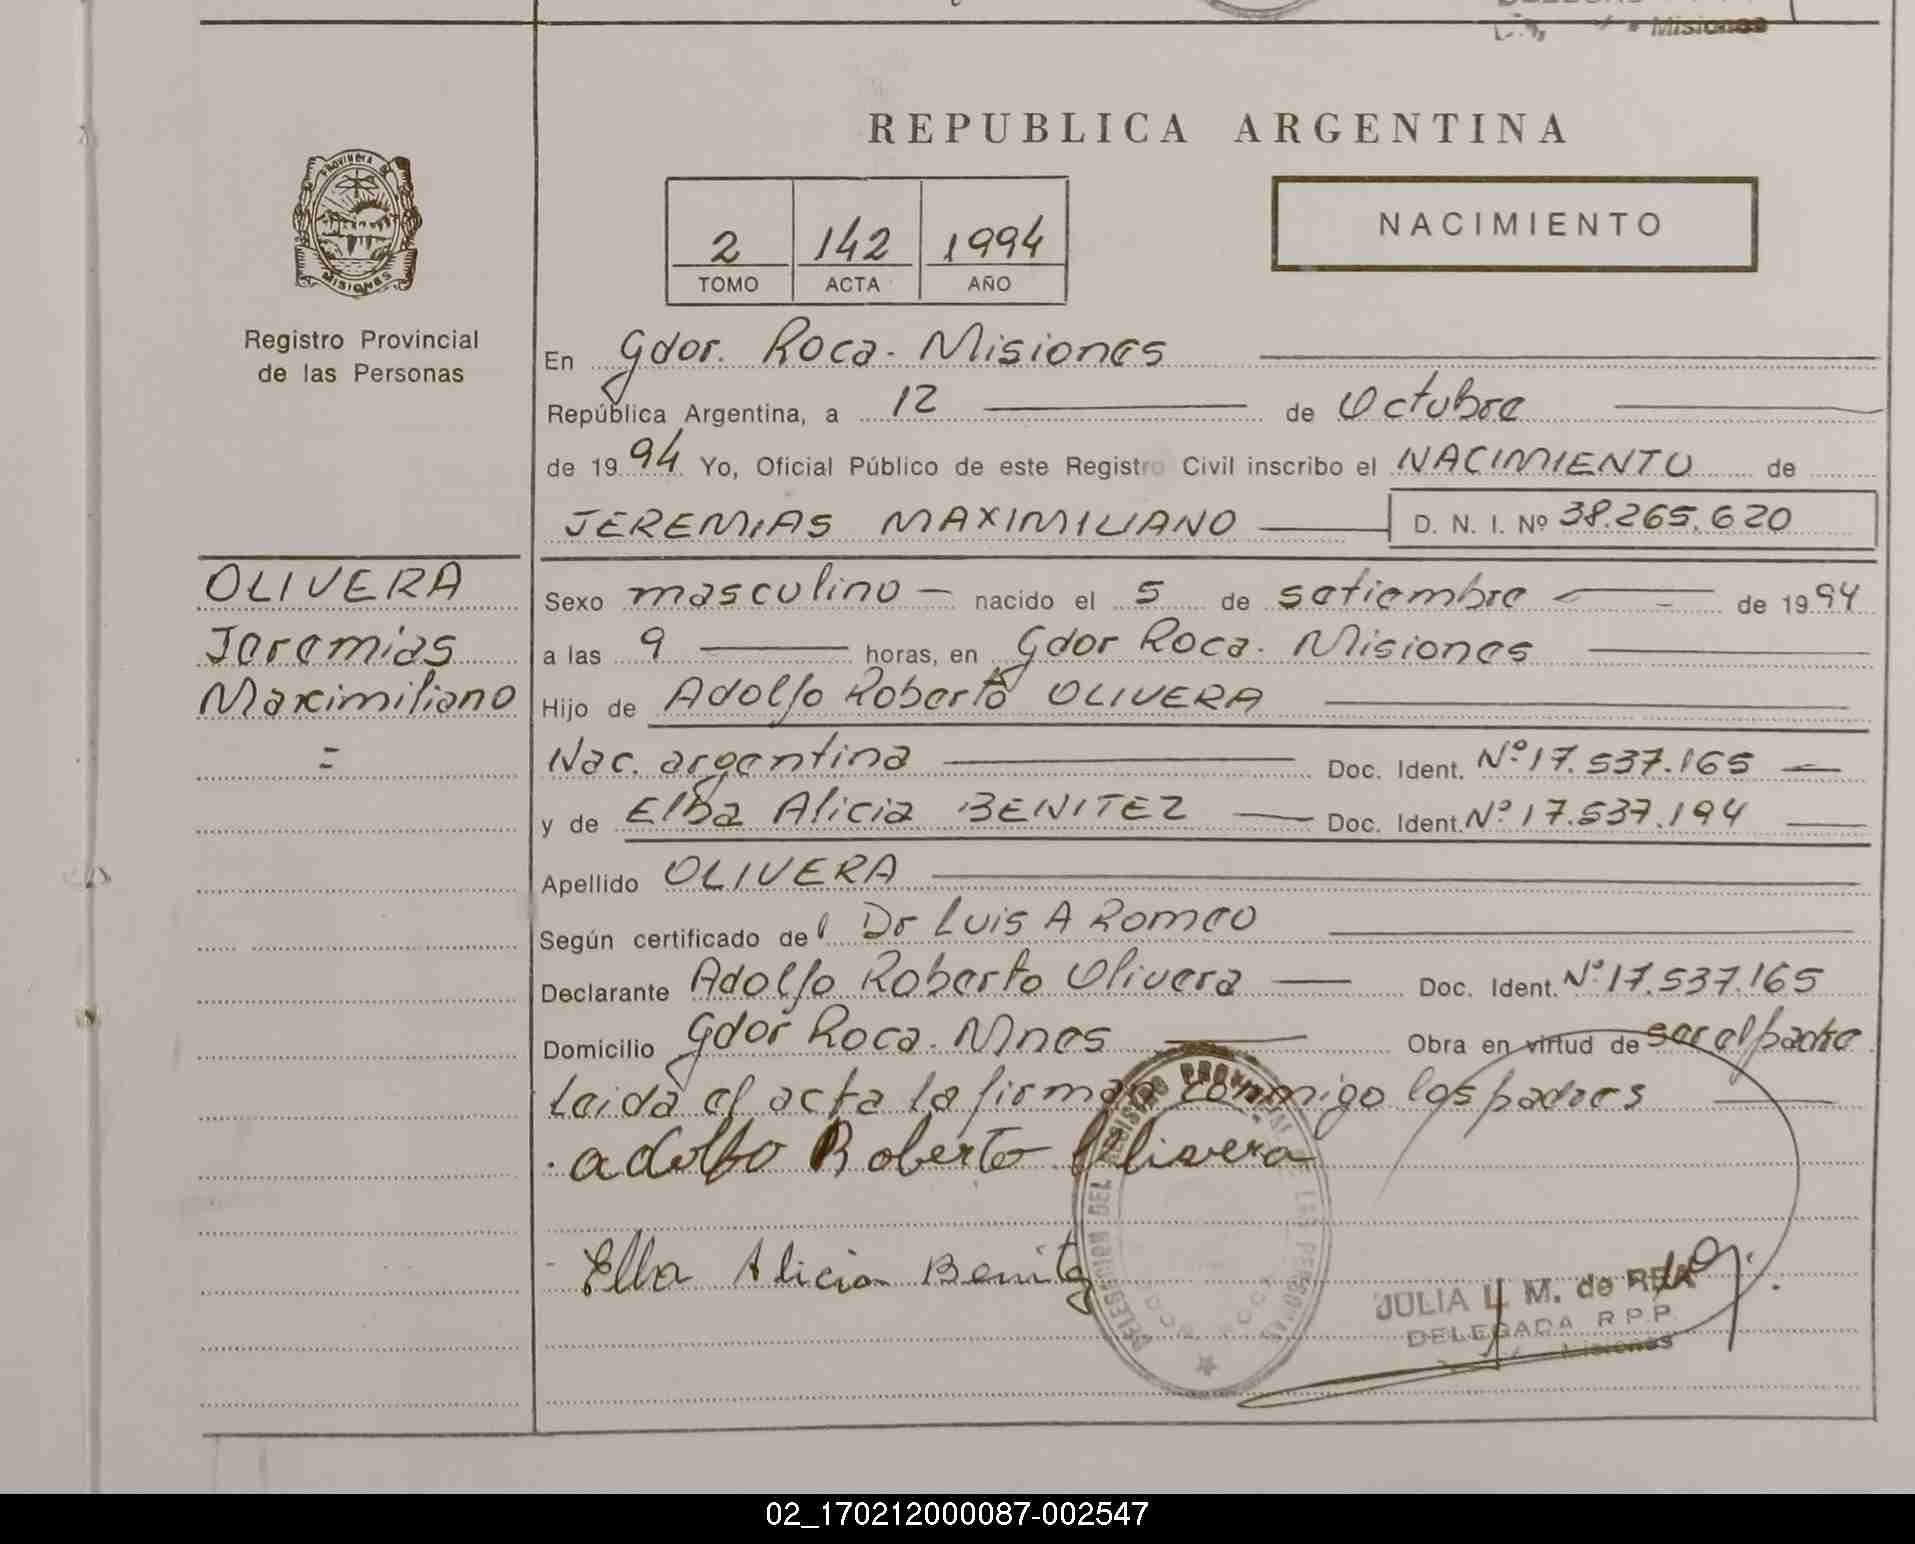 Misiones
REPUBLICA ARGENTINA
PROVINCIA DE
MISIONES
2 142 1994
TOMO ACTA AÑO
NACIMIENTO
Registro Provincial
de las Personas
En Gdor. Roca. Misiones
República Argentina, a 12 de Octubre
de 1994 Yo, Oficial Público de este Registro Civil inscribo el NACIMIENTO de
JEREMIAS MAXIMILIANO D. N. I. Nº 38.265.620
OLIVERA
Jeremias
Maximiliano
=
Sexo masculino nacido el 5 de setiembre de 1994
a las 9 horas, en Gdor Roca. Misiones
Hijo de Adolfo Roberto OLIVERA
Nac. argentina Doc. Ident. Nº 17.537.165
y de Elba Alicia BENITEZ Doc. Ident. Nº 17.537.194
Apellido OLIVERA
Según certificado del Dr Luis A Romeo
Declarante Adolfo Roberto Olivera Doc. Ident. Nº 17.537.165
Domicilio Gdor Roca. Mnes Obra en virtud de ser el padre
Leida el acta la firman conmigo los padres
adolfo Roberto Olivera
Elba Alicia Benitez
DELEGACION DEL REGISTRO PROVINCIAL DE LAS PERSONAS
GDOR ROCA
JULIA L. M. de REA
DELEGADA R.P.P.
Misiones
02_170212000087-002547